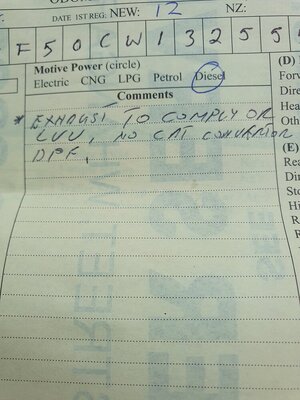 DATE 1ST REG: NEW: 12 NZ:
F 5 0 C W 1 3 2 5 5
Motive Power (circle)
Electric CNG LPG Petrol Diesel
Comments
* EXHAUST TO COMPLY OR
LVV, NO CAT CONVERTOR
DPF,
(D)
For
Dire
Hea
Othe
(E)
Rea
Dir
Sto
Hi
R
R